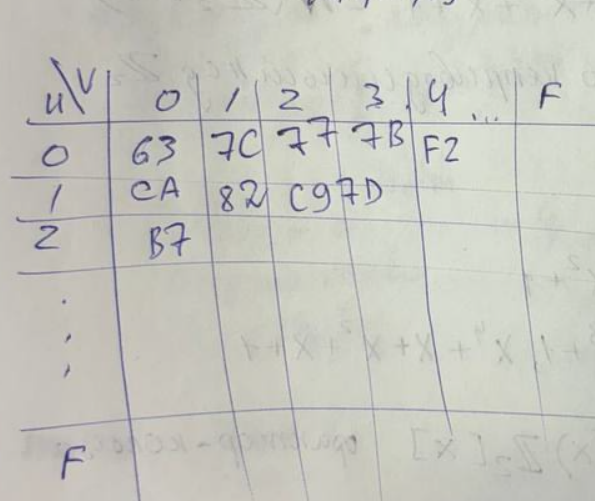 u\V 0 1 2 3 4 ... F
0 63 7C 77 7B F2
1 CA 82 C9 7D
2 B7
⋮
F